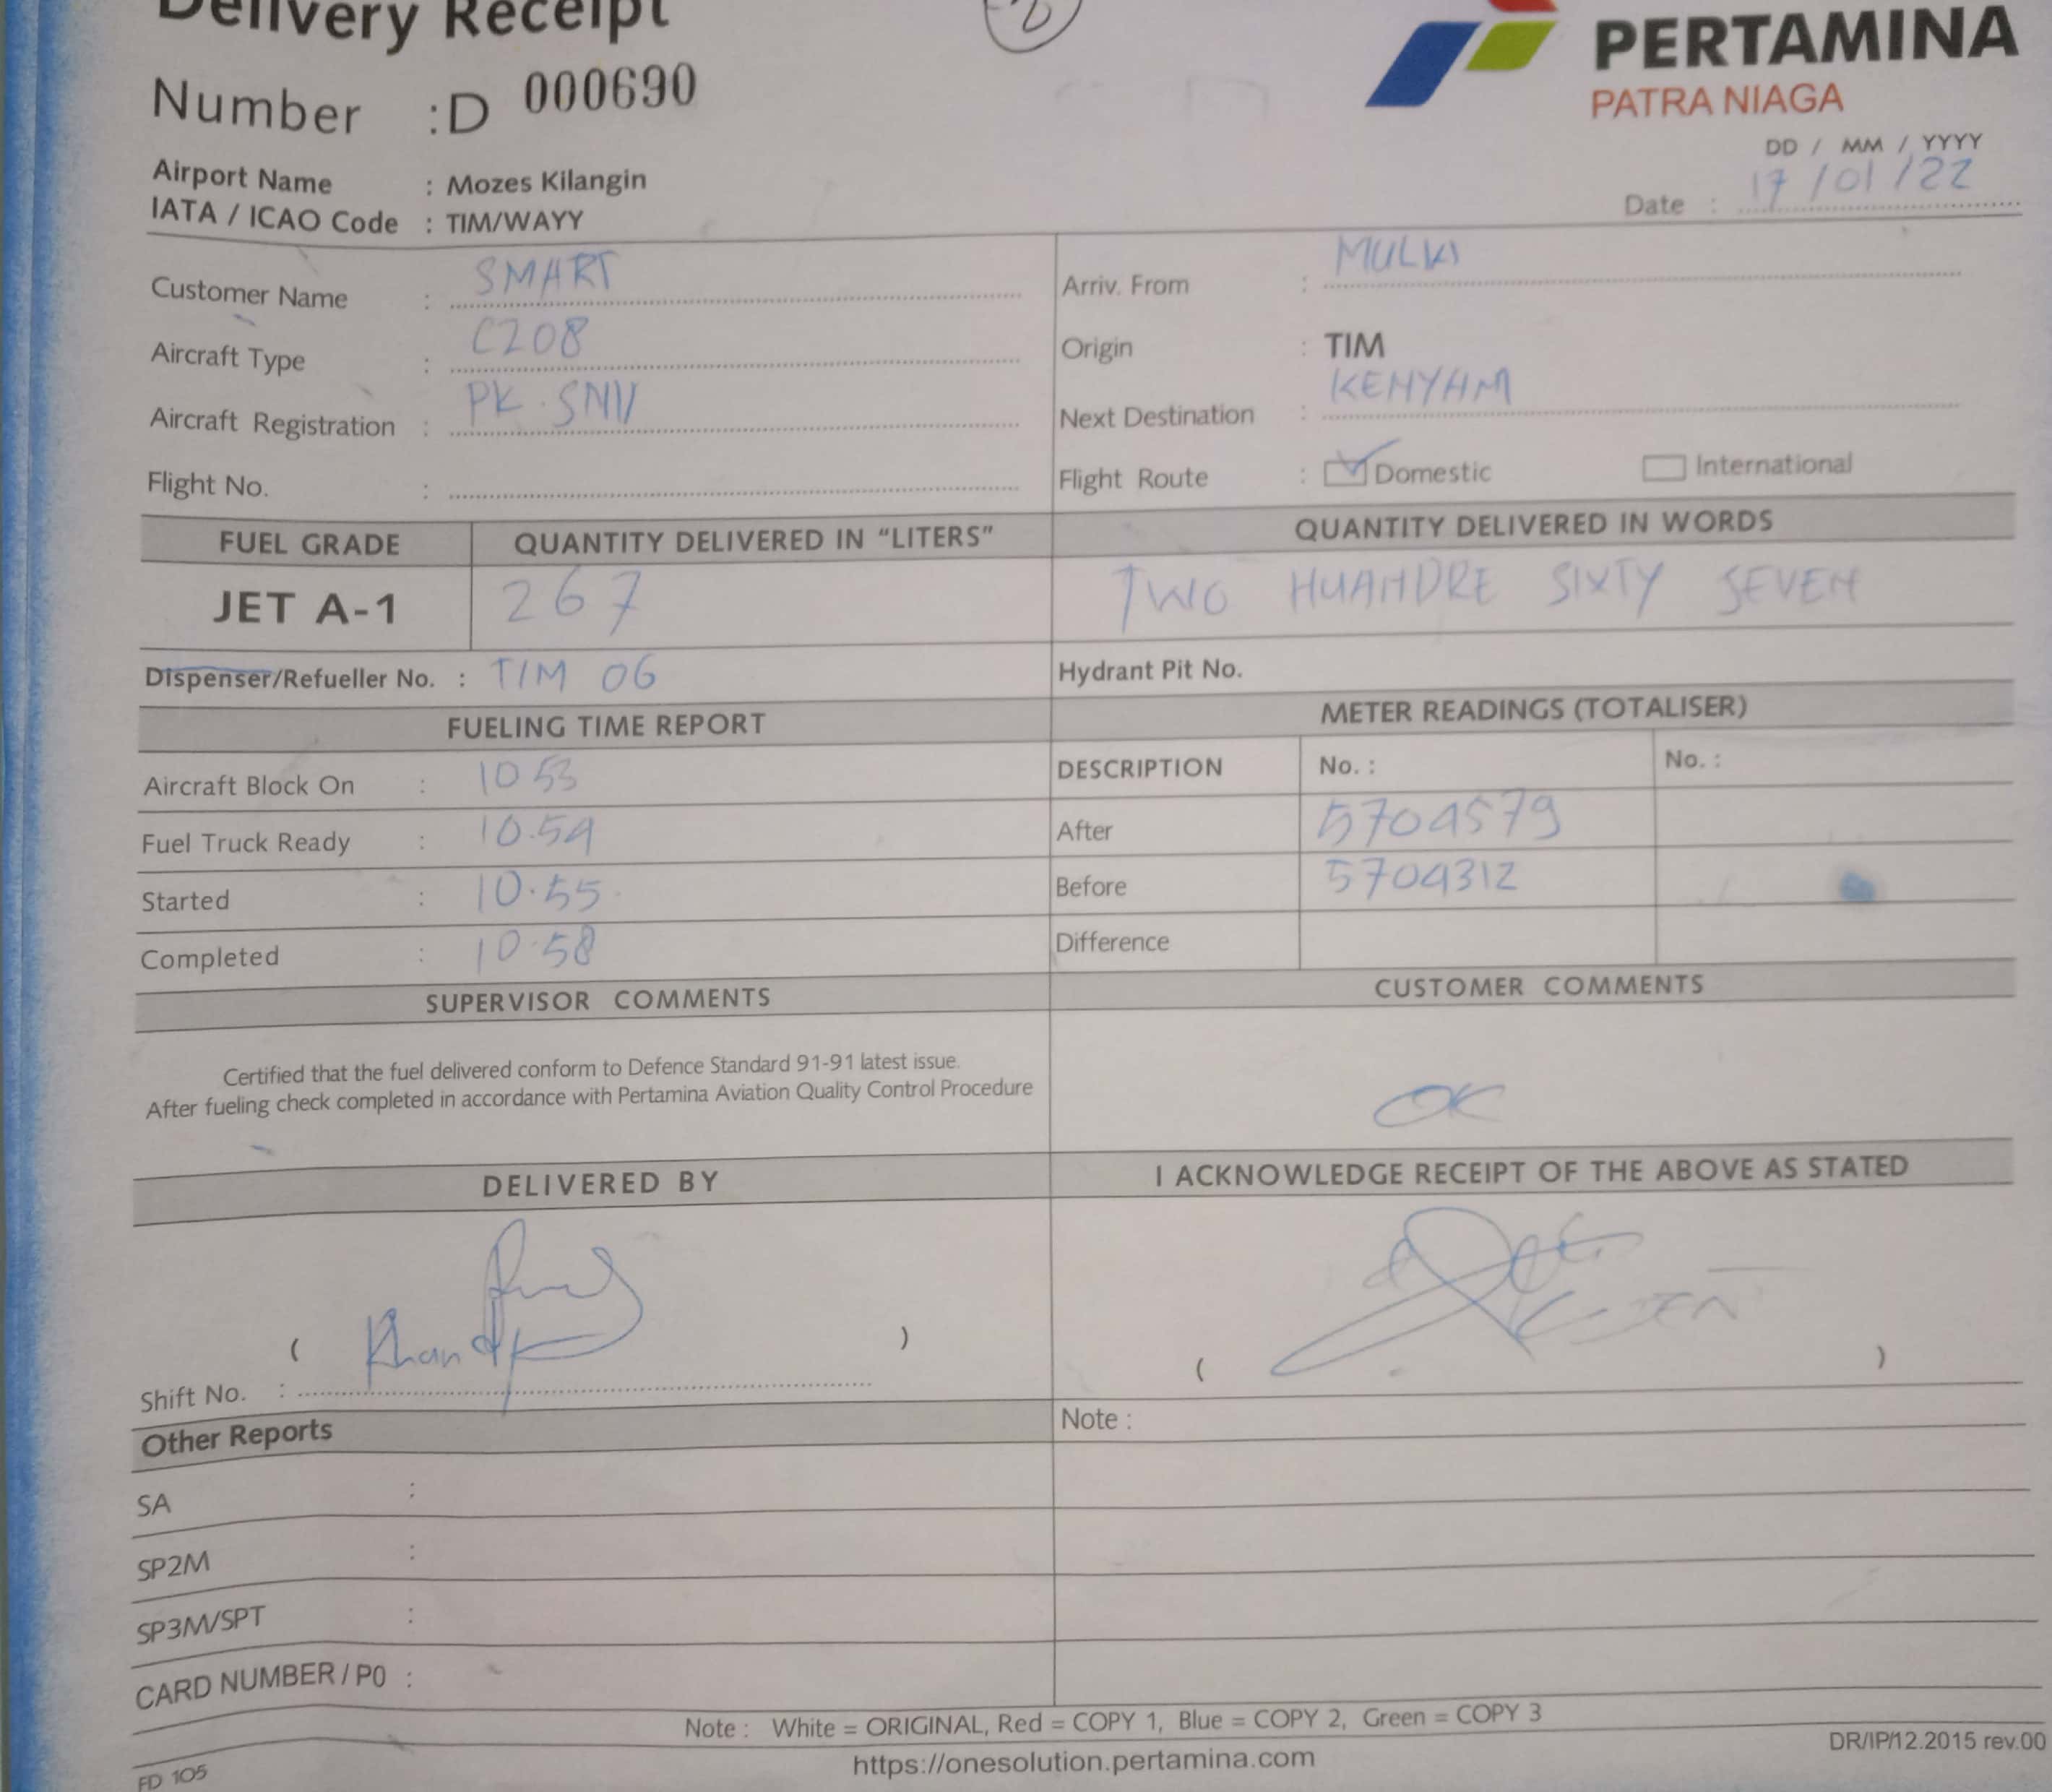 Delivery Receipt
PERTAMINA
PATRA NIAGA
Number : D 000690
DD / MM / YYYY
Date : 17/01/22
Airport Name : Mozes Kilangin
IATA / ICAO Code : TIM/WAYY
Customer Name : SMART
Arriv. From : MULKI
Aircraft Type : C208
Origin : TIM
Aircraft Registration : PK.SNV
Next Destination : KENYAM
Flight No. :
Flight Route : Domestic International
FUEL GRADE QUANTITY DELIVERED IN "LITERS" QUANTITY DELIVERED IN WORDS
JET A-1 267 TWO HUANDRE SIXTY SEVEN
Dispenser/Refueller No. : TIM 06
Hydrant Pit No.
FUELING TIME REPORT METER READINGS (TOTALISER)
DESCRIPTION No. : No. :
Aircraft Block On : 10 53
Fuel Truck Ready : 10.54
After 5704579
Started : 10.55
Before 5704312
Completed : 10.58
Difference
SUPERVISOR COMMENTS CUSTOMER COMMENTS
Certified that the fuel delivered conform to Defence Standard 91-91 latest issue.
After fueling check completed in accordance with Pertamina Aviation Quality Control Procedure
OK
DELIVERED BY I ACKNOWLEDGE RECEIPT OF THE ABOVE AS STATED
( )
( )
Shift No. :
Other Reports
Note :
SA :
SP2M :
SP3M/SPT :
CARD NUMBER / P0 :
Note : White = ORIGINAL, Red = COPY 1, Blue = COPY 2, Green = COPY 3
DR/IP/12.2015 rev.00
https://onesolution.pertamina.com
FD 105